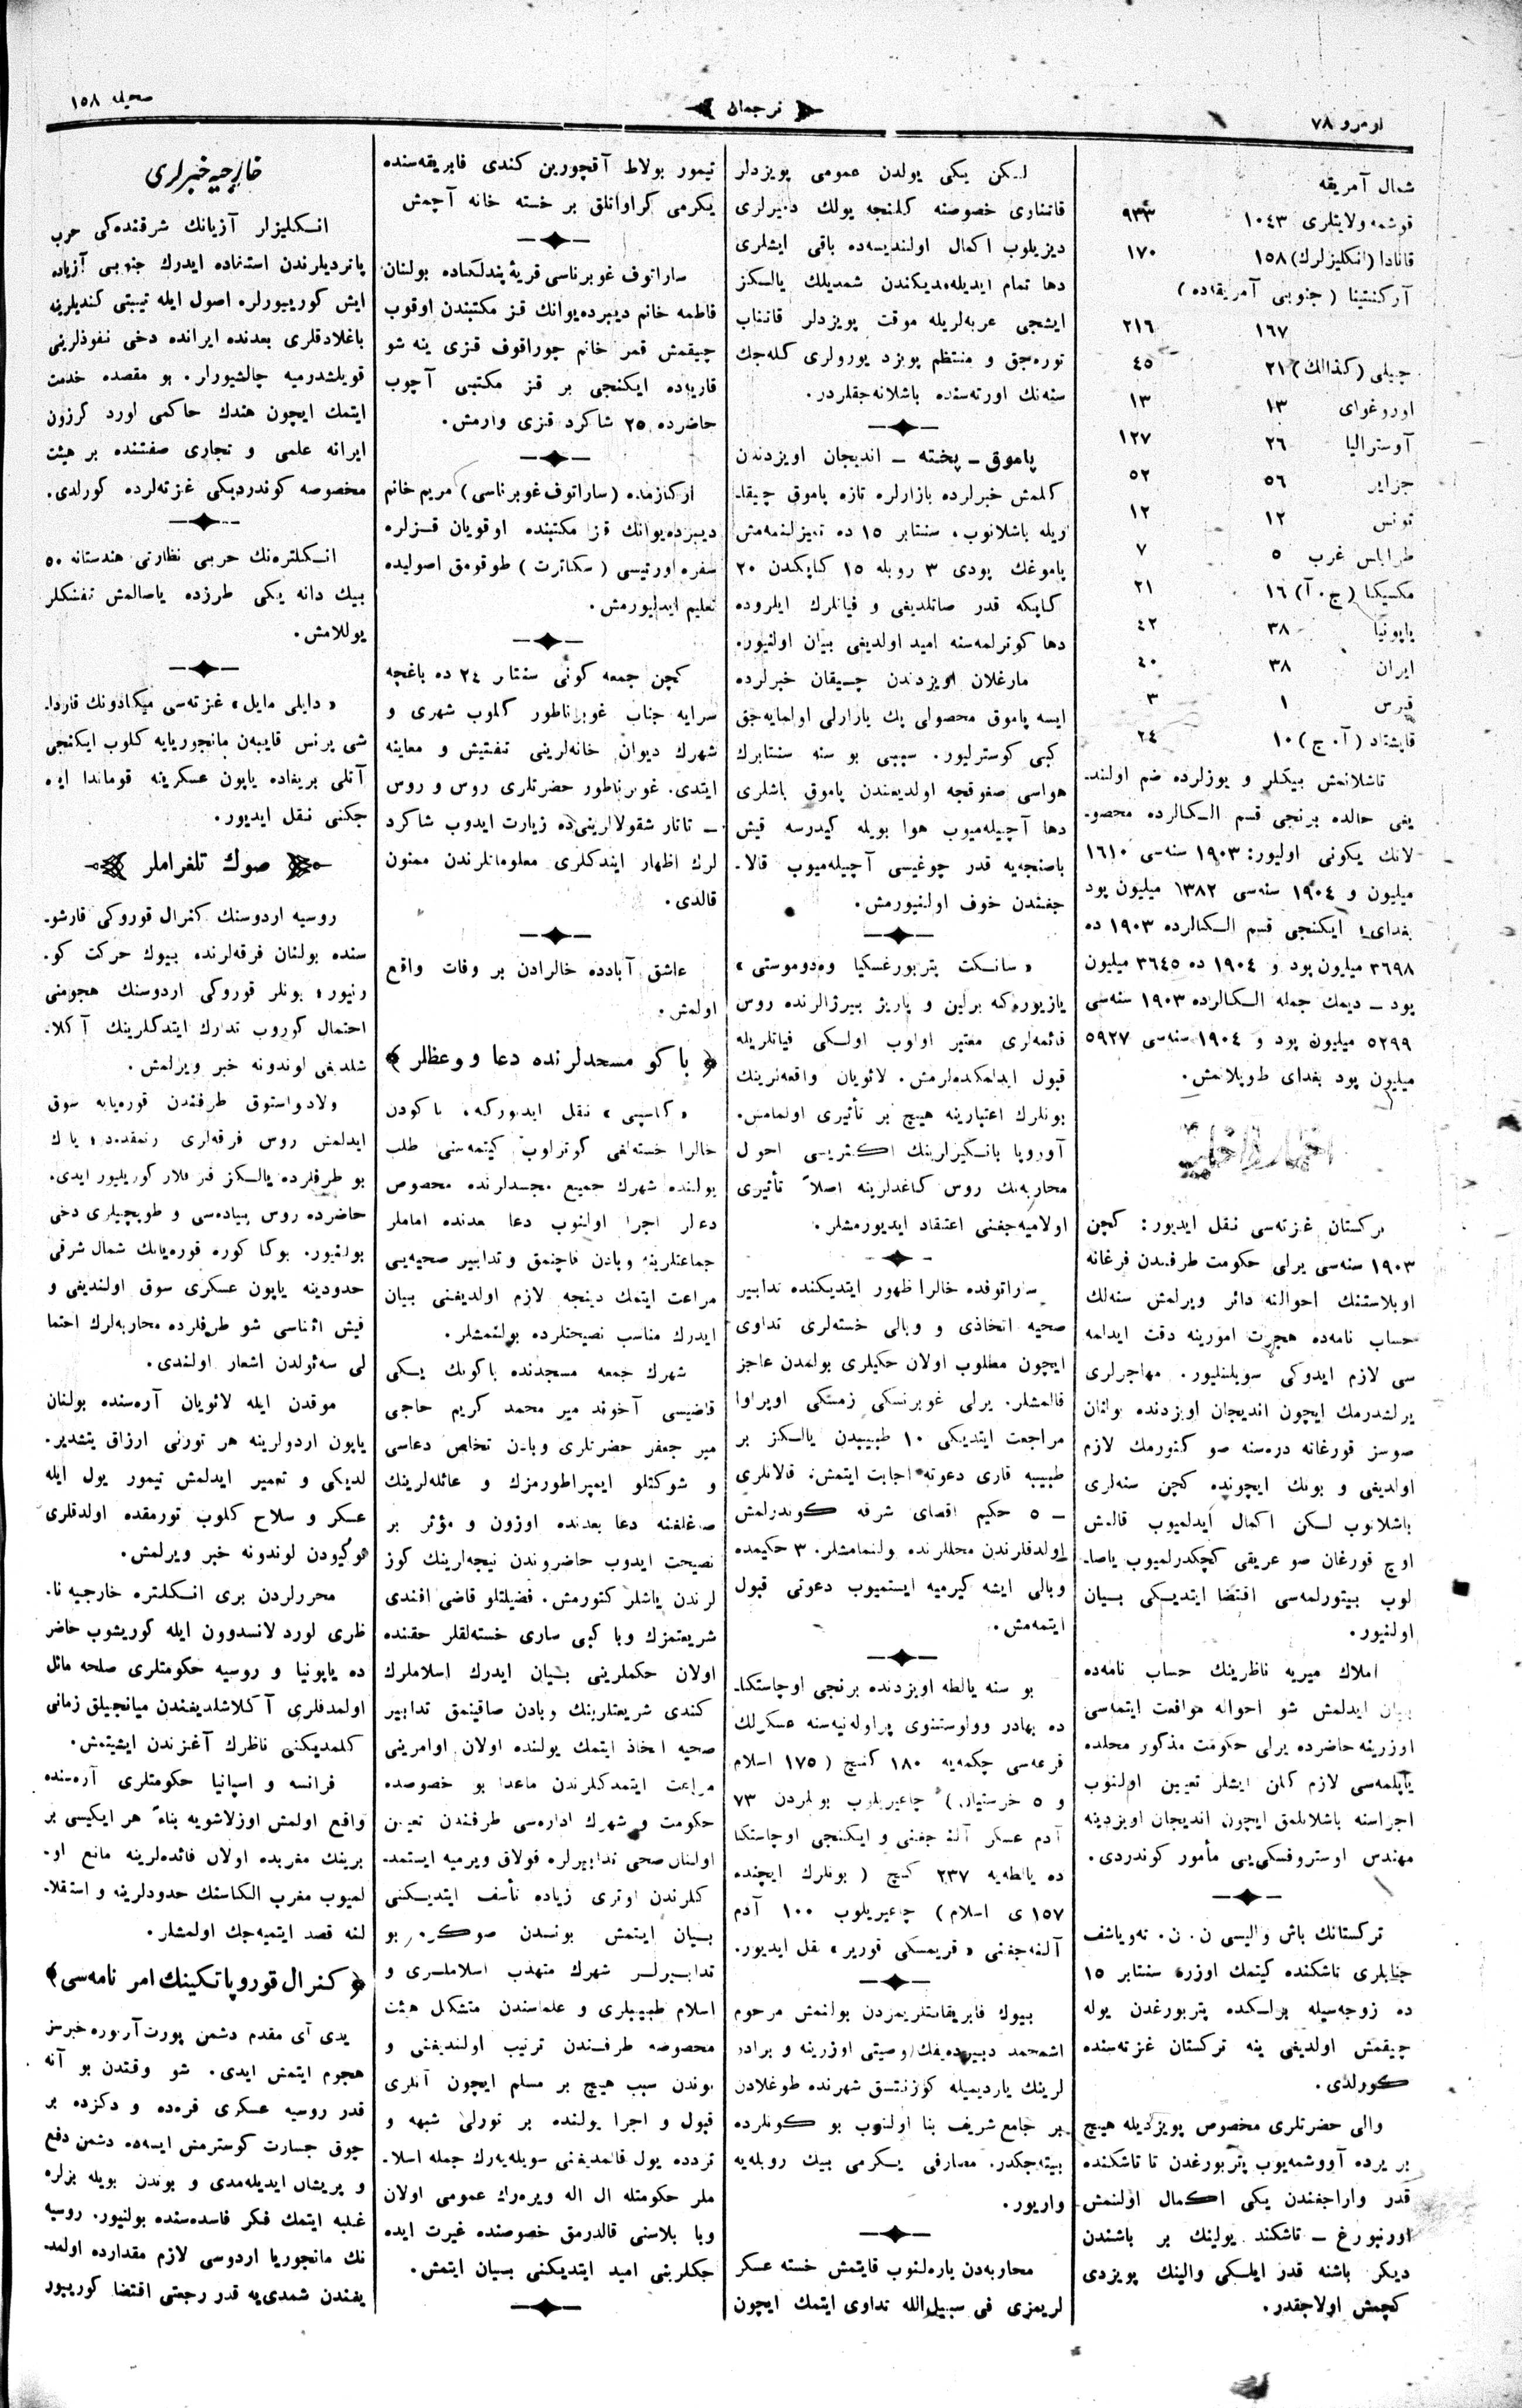 نومرو ٧٨
ترجمان
صحیفه ١٥٨
شمال آمریقه
قوشمه ولایتلری ١٠٤٣ ٩٣٣
قانادا (انکلیزلرك) ١٥٨ ١٧٠
آرکنتینا (جنوبی آمریقاده)
١٦٧ ٢١٦
چیلی (کذالك) ٢١ ٤٥
اوروغوای ١٣ ١٣
آوسترالیا ٢٦ ١٢٧
جزایر ٥٦ ٥٢
تونس ١٢ ١٢
طرابلس غرب ٥ ٧
مکسیکا (ج. آ) ١٦ ٢١
یاپونیا ٣٨ ٤٢
ایران ٣٨ ٤٠
قبرس ١ ٣
قاپشتاد (آ. ج) ١٠ ٢٤
تاشلانمش بیکلر و یوزلرده ضم اولند-
یغی حالده برنجی قسم الکالرده محصو-
لاتك یکونی اولیور: ١٩٠٣ سنه‌سی ١٦١٠
میلیون و ١٩٠٤ سنه‌سی ١٣٨٢ میلیون پود
بغدای؛ ایکنجی قسم الکالرده ١٩٠٣ ده
٣٦٩٨ میلیون پود و ١٩٠٤ ده ٣٦٤٥ میلیون
پود – دیمك جمله الکالرده ١٩٠٣ سنه‌سی
٥٢٩٩ میلیون پود و ١٩٠٤ سنه‌سی ٥٩٢٧
میلیون پود بغدای طوپلانمش.
اخبار داخلیه
ترکستان غزته‌سی نقل ایدیور: کچن
١٩٠٣ سنه‌سی یرلی حکومت طرفندن فرغانه
اوبلاستنك احوالنه دائر ویرلمش سنه‌لك
حساب نامه‌ده هجرت امورینه دقت ایدلمه
سی لازم ایدوکی سویلنلیور. مهاجرلری
یرلشدرمك ایچون اندیجان اویزدنده بولنان
صوسز قورغانه دره‌سنه صو کتورمك لازم
اولدیغی و بونك ایچونده کچن سنه‌لری
باشلانوب لکن اکمال ایدلمیوب قالمش
اوچ قورغان صو عریقی کچکدرلمیوب یاصا-
لوب بیتورلمه‌سی اقتضا ایتدیکی بیان
اولنیور.
املاك میریه ناظرینك حساب نامه‌ده
بیان ایدلمش شو احواله موافقت ایتمه‌سی
اوزرینه حاضرده یرلی حکومت مذکور محلده
یاپلمه‌سی لازم کلن ایشلر تعیین اولنوب
اجراسنه باشلانلمق ایچون اندیجان اویزدینه
مهندس اوستروفسکی‌یی مأمور کوندردی.
ترکستانك باش والیسی ن. ن. ته‌ویاشف
جنابلری تاشکنده کیتمك اوزره سنتابر ١٥
ده زوجه‌سیله برلکده پتربورغدن یوله
چیقمش اولدیغی ینه ترکستان غزته‌سنده
کورلدی.
والی حضرتلری مخصوص پویزدیله هیچ
بر یرده آووشمه‌یوب پتربورغدن تا تاشکنده
قدر واراجغندن یکی اکمال اولنمش
اورنبورغ – تاشکند یولینك بر باشندن
دیکر باشنه قدر ایلکی والینك پویزدی
کچمش اولاجقدر.
لیکن یکی یولدن عمومی پویزدلر
قاتناری خصوصنه کلنجه یولك دمیرلری
دیزیلوب اکمال اولندیسه‌ده باقی ایشلری
دها تمام ایدیله‌مدیکندن شمدیلك یالکز
ایشچی عربه‌لریله موقت پویزدلر قاتناب
توره‌جق و منتظم پویزد یورولری کله‌جك
سنه‌نك اورته‌سنده باشلانه‌جقلردر.
پاموق – پخته – اندیجان اویزدندن
کلمش خبرلرده بازارلره تازه پاموق چیقا-
ریله باشلانوب، سنتابر ١٥ ده تمیزلنمه‌مش
پاموغك پودی ٣ روبله ١٥ کاپکدن ٢٠
کاپکه قدر صاتلدیغی و فیاتلرك ایلروده
دها کوترلمه‌سنه امید اولدیغی بیان اولنیور.
مارغلان اویزدندن چیقان خبرلرده
ایسه پاموق محصولی پك یازارلی اولمایه‌جق
کبی کوسترلیور. سببی بو سنه سنتابرك
هواسی صغوقجه اولدیغندن پاموق باشلری
دها آچیله‌میوب هوا بویله کیدرسه قیش
باصنجه‌یه قدر چوغیسی آچیله‌میوب قالا-
جغندن خوف اولنیورمش.
« سانکت پتربورغسکیا وه‌دوموستی »
یازیورکه برلین و پاریژ بیرژالرنده روس
قائمه‌لری معتبر اولوب اولکی فیاتلریله
قبول ایدلمکده‌لرمش. لائویان واقعه‌لرینك
بونلرك اعتبارینه هیچ بر تأثیری اولمامش.
آوروپا بانکیرلرینك اکثریسی احوال
محاربه‌نك روس کاغدلرینه اصلاً تأثیری
اولامیه‌جغنی اعتقاد ایدیورمشلر.
ساراتوفده خالرا ظهور ایتدیکنده تدابیر
صحیه اتخاذی و وبالی خسته‌لری تداوی
ایچون مطلوب اولان حکیلری بولمقدن عاجز
قالمشلر. یرلی غوبرنسکی زمستکی اوپراوا
مراجعت ایتدیکی ١٠ طبیبدن یالکز بر
طبیبه قاری دعوته اجابت ایتمش؛ قالانلری
– ٥ حکیم اقصای شرقه کوندرلمش
اولدقلرندن محللرنده بولنمامشلر. ٣ حکیمده
وبالی ایشه کیرمیه ایستمیوب دعوتی قبول
ایتمه‌مش.
بو سنه یالطه اویزدنده برنجی اوچاستکا-
ده بهادر وولوستنوی پراوله‌نیه‌سنه عسکرلك
قرعه‌سی چکمه‌یه ١٨٠ کنچ (١٧٥ اسلام
و ٥ خرستیان) چاغیریلوب بولردن ٧٣
آدم عسکر آلنه‌جغنی و ایکنجی اوچاستکا
ده یالطه‌یه ٢٣٧ کنچ (بونلرك ایچنده
١٥٧ ی اسلام) چاغیریلوب ١٠٠ آدم
آلنه‌جغنی « قریمسکی قوریر » نقل ایدیور.
بیوك فابریقانتلریمزدن بولنمش مرحوم
اشمحمد دیبیرده‌یفك وصیتی اوزرینه و برادر
لرینك یاردیمیله کوزنتسق شهرنده طوغلادن
بر جامع شریف بنا اولنوب بو کونلرده
بیته‌جکدر. مصارفی یکرمی بیك روبله‌یه
واریور.
محاربه‌دن یاره‌لنوب قایتمش خسته عسکر
لریمزی فی سبیل الله تداوی ایتمك ایچون
تیمور بولاط آقچورین کندی فابریقه‌سنده
یکرمی کراواتلق بر خسته خانه آچمش
ساراتوف غوبرناسی قریهٔ پندلکاده بولنان
فاطمه خانم دیبرده‌یوانك قز مکتبندن اوقوب
چیقمش قمر خانم چوراقوف قزی ینه شو
قاریه‌ده ایکنجی بر قز مکتبی آچوب
حاضرده ٢٥ شاکرد قزی وارمش.
(ساراتوف غوبرناسی) مریم خانم
دیبرده‌یوانك قز مکتبنده اوقویان قزلره
سفره اورتیسی (سکاترت) طوقومق اصولیده
تعلیم ایدلیورمش.
کچن جمعه کونی سنتابر ٢٤ ده باغچه
سرایه جناب غوبرناطور کلوب شهری و
شهرك دیوان خانه‌لرینی تفتیش و معاینه
ایتدی. غوبرناطور حضرتلری روس و روس
– تاتار شقولالرینی‌ده زیارت ایدوب شاکرد
لرك اظهار ایتدکلری معلوماتلرندن ممنون
قالدی.
عاشق آبادده خالرادن بر وفات واقع
اولمش.
﴿ باکو مسجدلرنده دعا و وعظلر ﴾
« کاسپی » نقل ایدیورکه، باکودن
خالرا خسته‌لغی کوتراوب کیتمه‌سنی طلب
یولنده شهرك جمیع مسجدلرنده مخصوص
دعالر اجرا اولنوب دعا بعدنده اماملر
جماعتلرینه وبادن قاچنمق و تدابیر صحیه‌یی
مراعت ایتمك دینجه لازم اولدیغنی بیان
ایدرك مناسب نصیحتلرده بولنمشلر.
شهرك جمعه مسجدنده باکونك یکی
قاضیسی آخوند میر محمد کریم حاجی
میر جعفر حضرتلری وبادن تخلص دعاسی
و شوکتلو ایمپراطورمزك و عائله‌لرینك
صاغلغنه دعا بعدنده اوزون و مؤثر بر
نصیحت ایدوب حاضروندن نیجه‌لرینك کوز
لرندن یاشلر کتورمش. فضیلتلو قاضی افندی
شریعتمزك وبا کبی ساری خسته‌لقلر حقنده
اولان حکملرینی بیان ایدرك اسلاملرك
کندی شریعتلرینك وبادن صاقینمق تدابیر
صحیه اتخاذ ایتمك یولنده اولان اوامرینی
مراعت ایتمدکلرندن ماعدا بو خصوصده
حکومت و شهرك اداره‌سی طرفندن تعیین
اولنان صحی تدابیرلره قولاق ویرمیه ایستمد-
کلرندن اوتری زیاده تأسف ایتدیکنی
بیان ایتمش بوندن صوکره بو
تدابیرلر شهرك متهذب اسلاملری و
اسلام طبیبلری و علماسندن متشکل هئت
مخصوصه طرفندن ترتیب اولندیغنی و
بوندن سبب هیچ بر مسلم ایچون آنلری
قبول و اجرا یولنده بر تورلی شبهه و
تردده یول قالمدیغنی سویلیه‌رك جمله اسلا-
ملر حکومتله ال اله ویره‌رك عمومی اولان
وبا بلاسنی قالدرمق خصوصنده غیرت ایده
جکلرینی امید ایتدیکنی بیان ایتمش.
خارجیه خبرلری
انکلیزلر آزیانك شرقنده‌کی حرب
پاتردیلرندن استفاده ایدرك جنوبی آزیاده
ایش کورییورلر. اصول ایله تیبتی کندیلرینه
باغلادقلری بعدنده ایرانده دخی نفوذلرینی
قویلشدرمیه چالشیورلر. بو مقصده خدمت
ایتمك ایچون هندك حاکمی لورد کرزون
ایرانه علمی و تجاری صفتنده بر هیئت
مخصوصه کوندردیکی غزته‌لرده کورلدی.
انکلتره‌نك حربی نظارتی هندستانه ٥٠
بیك دانه یکی طرزده یاصالمش تفنکلر
یوللامش.
« دایلی مایل » غزته‌سی میکادونك قاردا-
شی پرنس قاییه‌ن مانجوریایه کلوب ایکنجی
آتلی بریغاده یاپون عسکرینه قوماندا ایده
جکنی نقل ایدیور.
صوك تلغراملر
روسیه اردوسنك کنرال قوروکی قارشو-
سنده بولنان فرقه‌لرنده بیوك حرکت کو-
رنیور؛ بونلر قوروکی اردوسنك هجومنی
احتمال کوروب تدارك ایتدکلرینك آکلا-
شلدیغی لوندونه خبر ویرلمش.
ولادواستوق طرفندن قوره‌یایه سوق
ایدلمش روس فرقه‌لری
بو طرفلرده یالکز قزاقلار کوریلیور ایدی.
حاضرده روس پیاده‌سی و طوپچیلری دخی
بولنیور. بوکا کوره قوره‌یانك شمال شرقی
حدودینه یاپون عسکری سوق اولندیغی و
قیش اثناسی شو طرفلرده محاربه‌لرك احتما
لی سه‌ئولدن اشعار اولندی.
موقدن ایله لائویان آره‌سنده بولنان
یاپون اردولرینه هر تورلی ارزاق یتشدیر-
لدیکی و تعمیر ایدلمش تیمور یول ایله
عسکر و سلاح کلوب تورمقده اولدقلری
توکیودن لوندونه خبر ویرلمش.
محررلردن بری انکلتره خارجیه نا-
ظری لورد لانسدوون ایله کوریشوب حاضر
ده یاپونیا و روسیه حکومتلری صلحه مائل
اولمدقلری آکلاشلدیغندن میانجیلق زمانی
کلمدیکنی ناظرك آغزندن ایشیتمش.
فرانسه و اسپانیا حکومتلری آره‌سنده
واقع اولمش اوزلاشویه بناءً هر ایکیسی بر
برینك مغربده اولان فائده‌لرینه مانع او-
لمیوب مغرب الکاسنك حدودلرینه و استقلا-
لنه قصد ایتمیه‌جك اولمشلر.
﴿ کنرال قوروپاتکینك امر نامه‌سی ﴾
یدی آی مقدم دشمن پورت آرتوره خبرسز
هجوم ایتمش ایدی. شو وقتدن بو آنه
قدر روسیه عسکری قره‌ده و دکزده بر
چوق جسارت کوسترمش ایسه‌ده دشمن دفع
و پریشان ایدیله‌مدی و بوندن بویله بزلره
غلبه ایتمك فکر فاسده‌سنده بولنیور. روسیه
نك مانجوریا اردوسی لازم مقدارده اولمد-
یغندن شمدی‌یه قدر رجعتی اقتضا کورییور